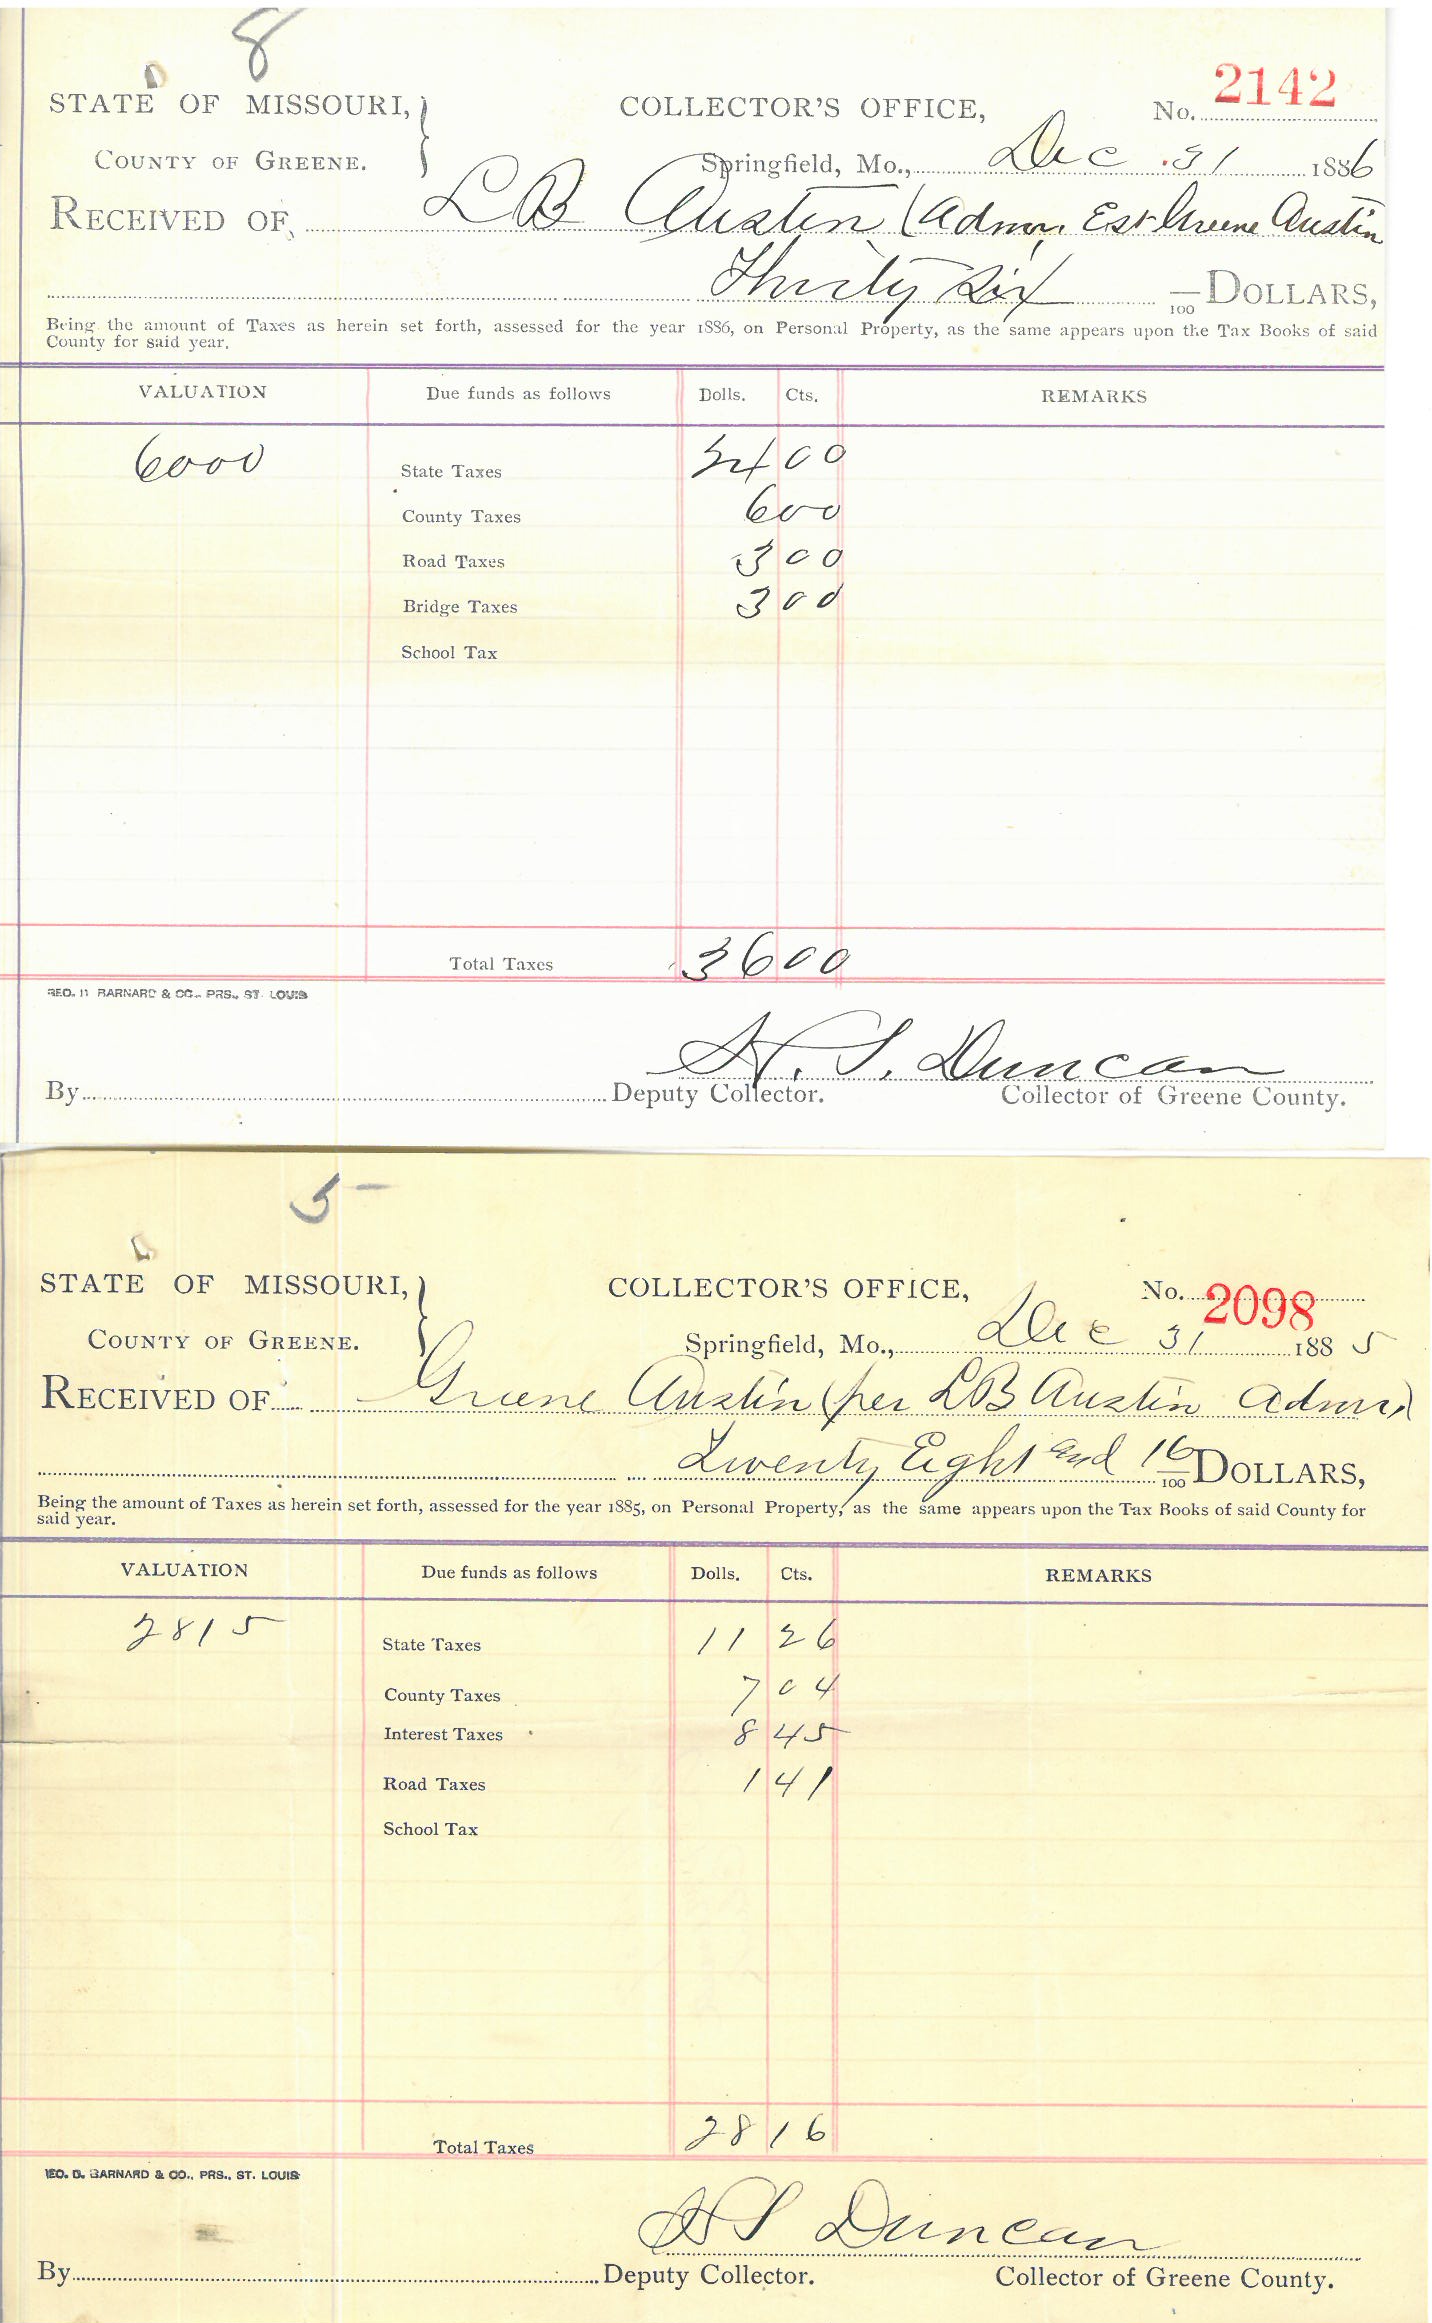 8
STATE OF MISSOURI, } COLLECTOR'S OFFICE, No. 2142
COUNTY OF GREENE. Springfield, Mo., Dec 31 1886
RECEIVED OF L B Austin (Admr, Est Greene Austin
Thirty Six — /100 DOLLARS,
Being the amount of Taxes as herein set forth, assessed for the year 1886, on Personal Property, as the same appears upon the Tax Books of said
County for said year.
VALUATION Due funds as follows Dolls. Cts. REMARKS
6000 State Taxes 24 00
County Taxes 6 00
Road Taxes 3 00
Bridge Taxes 3 00
School Tax
Total Taxes 36 00
BARNARD & CO., PRS., ST. LOUIS
Duncan
By Deputy Collector. Collector of Greene County.
5 –
STATE OF MISSOURI, } COLLECTOR'S OFFICE, No. 2098
COUNTY OF GREENE. Springfield, Mo., Dec 31 1885
RECEIVED OF Greene Austin (per L B Austin Admr,)
Twenty Eight and 16/100 DOLLARS,
Being the amount of Taxes as herein set forth, assessed for the year 1885, on Personal Property, as the same appears upon the Tax Books of said County for
said year.
VALUATION Due funds as follows Dolls. Cts. REMARKS
2815 State Taxes 11 26
County Taxes 7 04
Interest Taxes 8 45
Road Taxes 1 41
School Tax
Total Taxes 28 16
EO. D. BARNARD & CO., PRS., ST. LOUIS
Duncan
By Deputy Collector. Collector of Greene County.